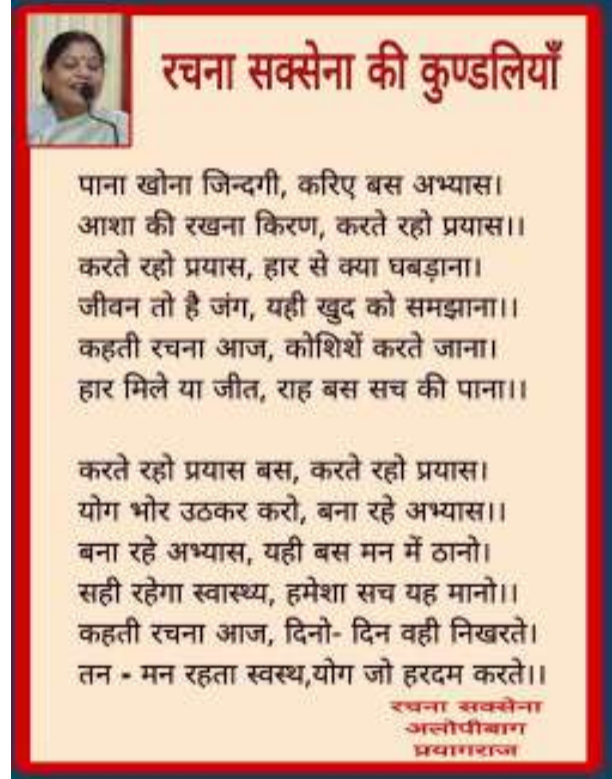 रचना सक्सेना की कुण्डलियाँ
पाना खोना जिन्दगी, करिए बस अभ्यास।
आशा की रखना किरण, करते रहो प्रयास।।
करते रहो प्रयास, हार से क्या घबड़ाना।
जीवन तो है जंग, यही खुद को समझाना।।
कहती रचना आज, कोशिशें करते जाना।
हार मिले या जीत, राह बस सच की पाना।।
करते रहो प्रयास बस, करते रहो प्रयास।
योग भोर उठकर करो, बना रहे अभ्यास।।
बना रहे अभ्यास, यही बस मन में ठानो।
सही रहेगा स्वास्थ्य, हमेशा सच यह मानो।।
कहती रचना आज, दिनो- दिन वही निखरते।
तन - मन रहता स्वस्थ,योग जो हरदम करते।।
रचना सक्सेना
अलोपीबाग
प्रयागराज